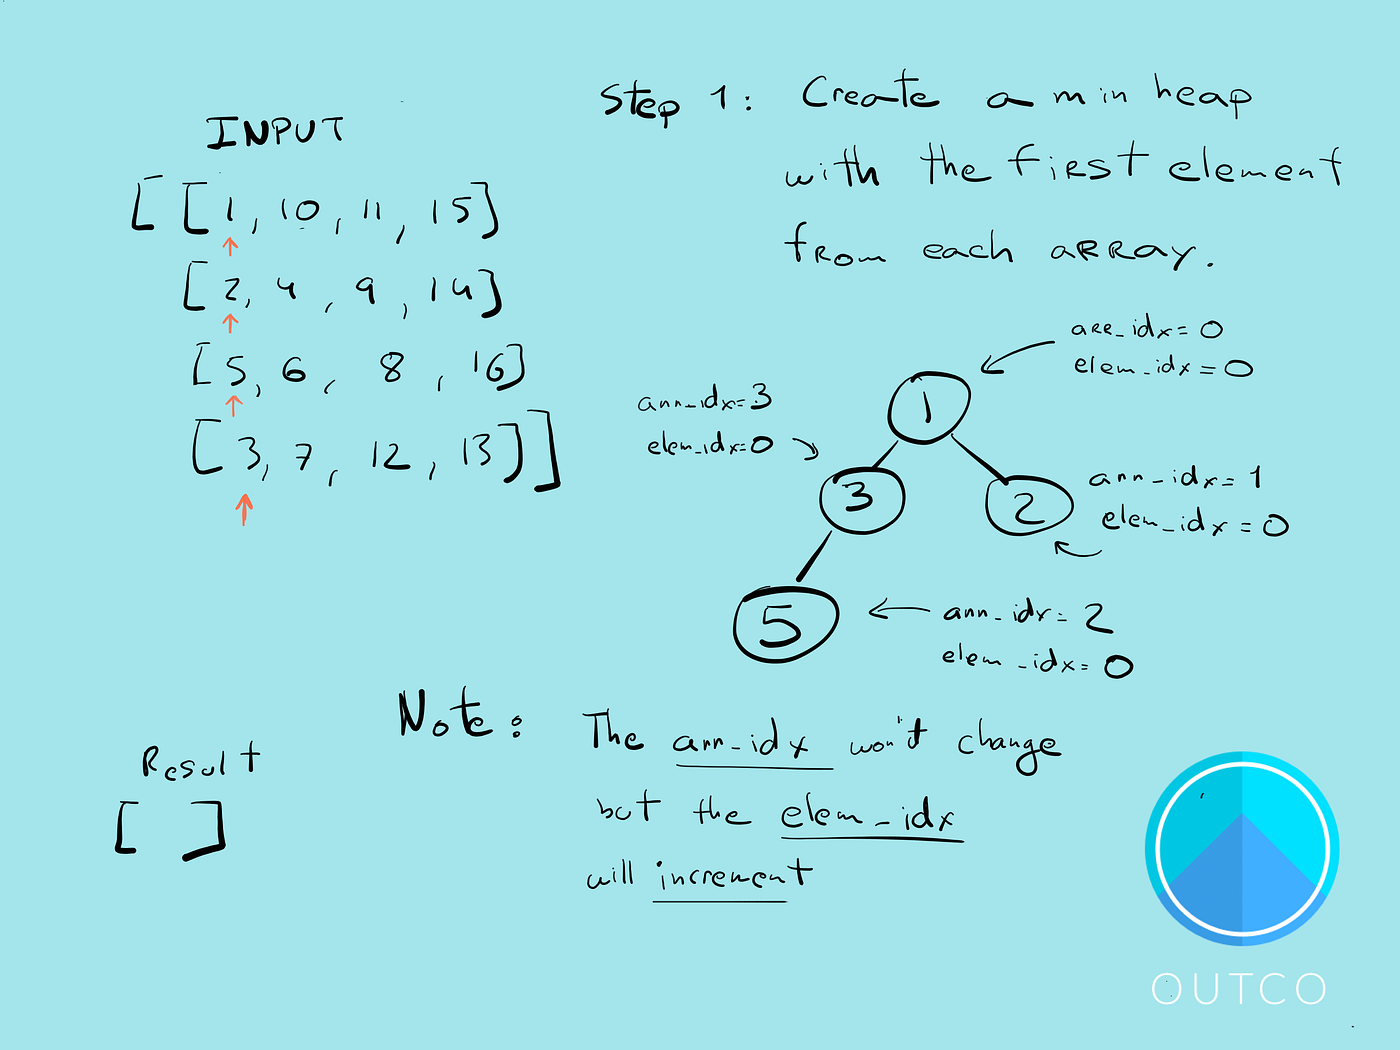 INPUT
[ [1, 10, 11, 15]
[2, 4, 9, 14]
[5, 6, 8, 16]
[3, 7, 12, 13] ]
Step 1: Create a min heap
with the first element
from each array.
arr_idx= 0
elem_idx = 0
1
arr_idx= 3
elem_idx= 0
3
2
arr_idx= 1
elem_idx = 0
5
arr_idx= 2
elem_idx= 0
Note: The arr_idx won't change
but the elem_idx
will increment
Result
[ ]
OUTCO